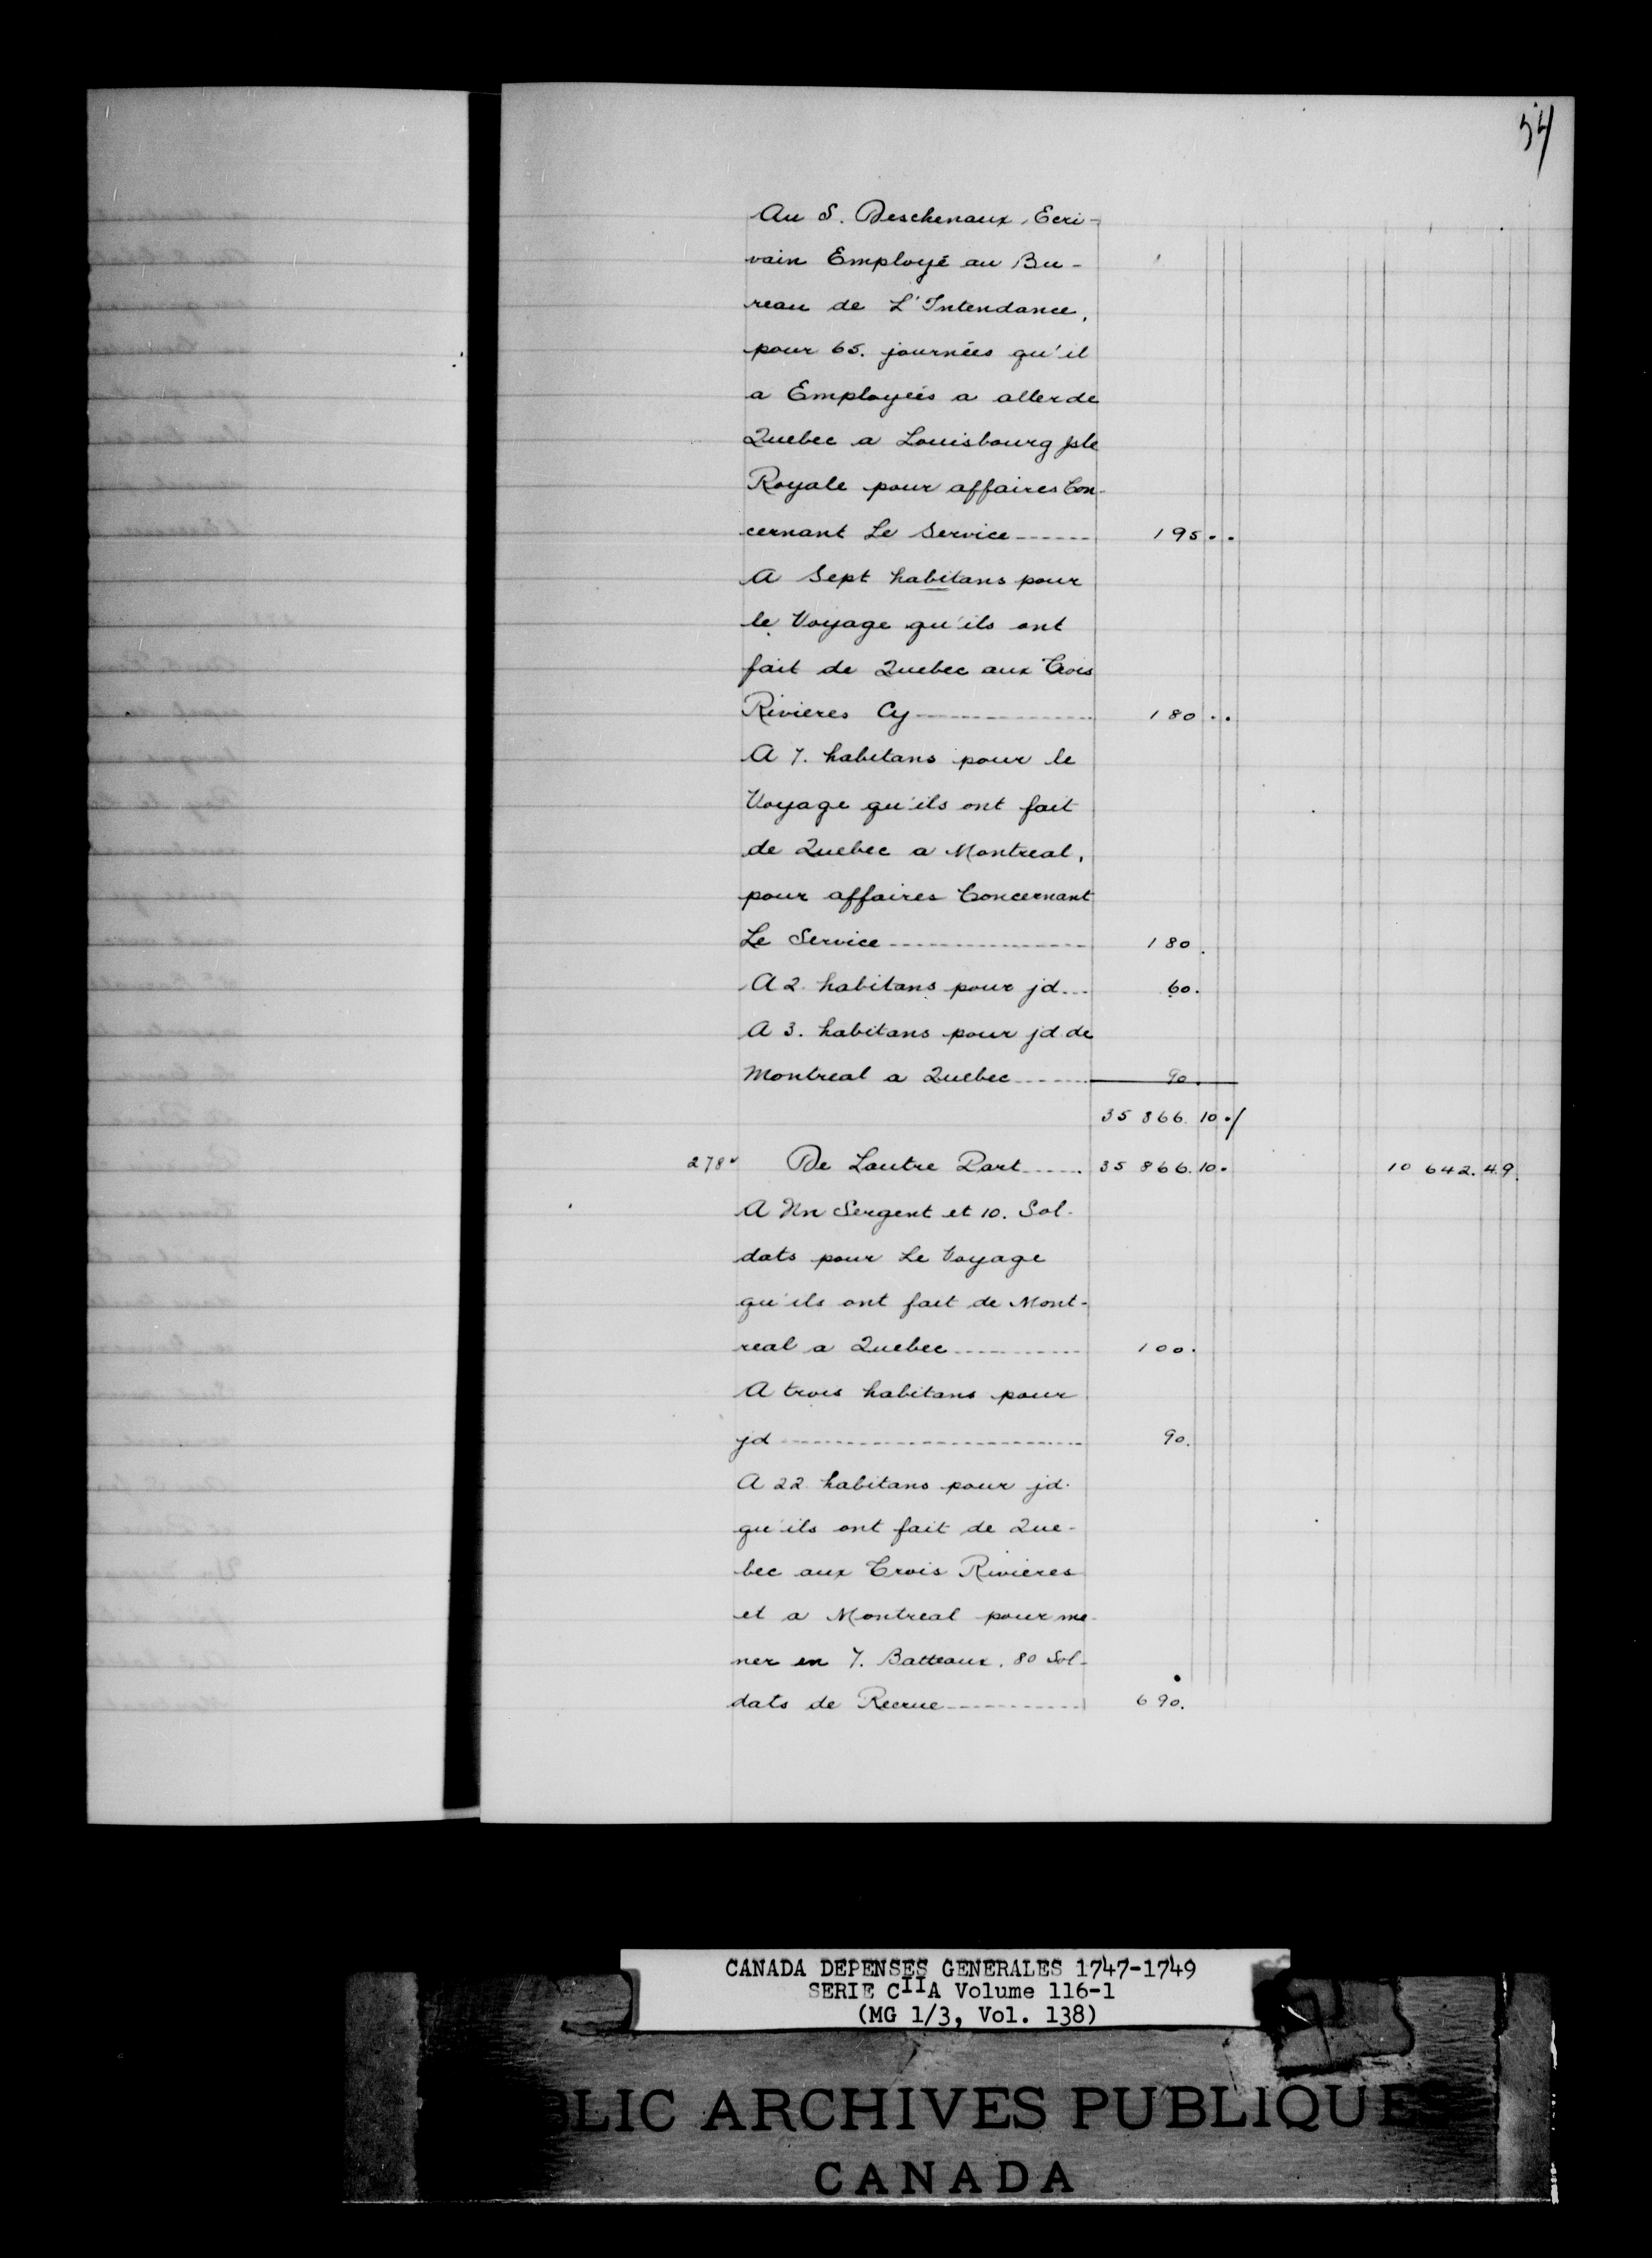 54
Au S. Deschenaux, Ecri-
vain Employé au Bu-
reau de L'Intendance,
pour 65. journées qu'il
a Employées a aller de
Quebec a Louisbourg jsle
Royale pour affaires Con-
cernant Le Service ------ 195 . .
A Sept habitans pour
le Voyage qu'ils ont
fait de Quebec aux Trois
Rivieres Cy ------ 180 . .
A 7. habitans pour le
Voyage qu'ils ont fait
de Quebec a Montreal,
pour affaires Concernant
Le Service ------ 180 .
A 2 habitans pour jd ... 60.
A 3. habitans pour jd de
Montreal a Quebec ------ 90.
35 866. 10 . /
278v De Lautre Part ------ 35 866. 10 . 10 642. 4 9.
A Un Sergent et 10. Sol-
dats pour Le Voyage
qu'ils ont fait de Mont-
real a Quebec ------ 100.
A trois habitans pour
jd ------ 90.
A 22 habitans pour jd.
qu'ils ont fait de Que-
bec aux Trois Rivieres
et a Montreal pour me-
ner en 7. Batteaux, 80 Sol-
dats de Recrue ------ 690.
CANADA DEPENSES GENERALES 1747-1749
SERIE CIIA Volume 116-1
(MG 1/3, Vol. 138)
BLIC ARCHIVES PUBLIQUES
CANADA